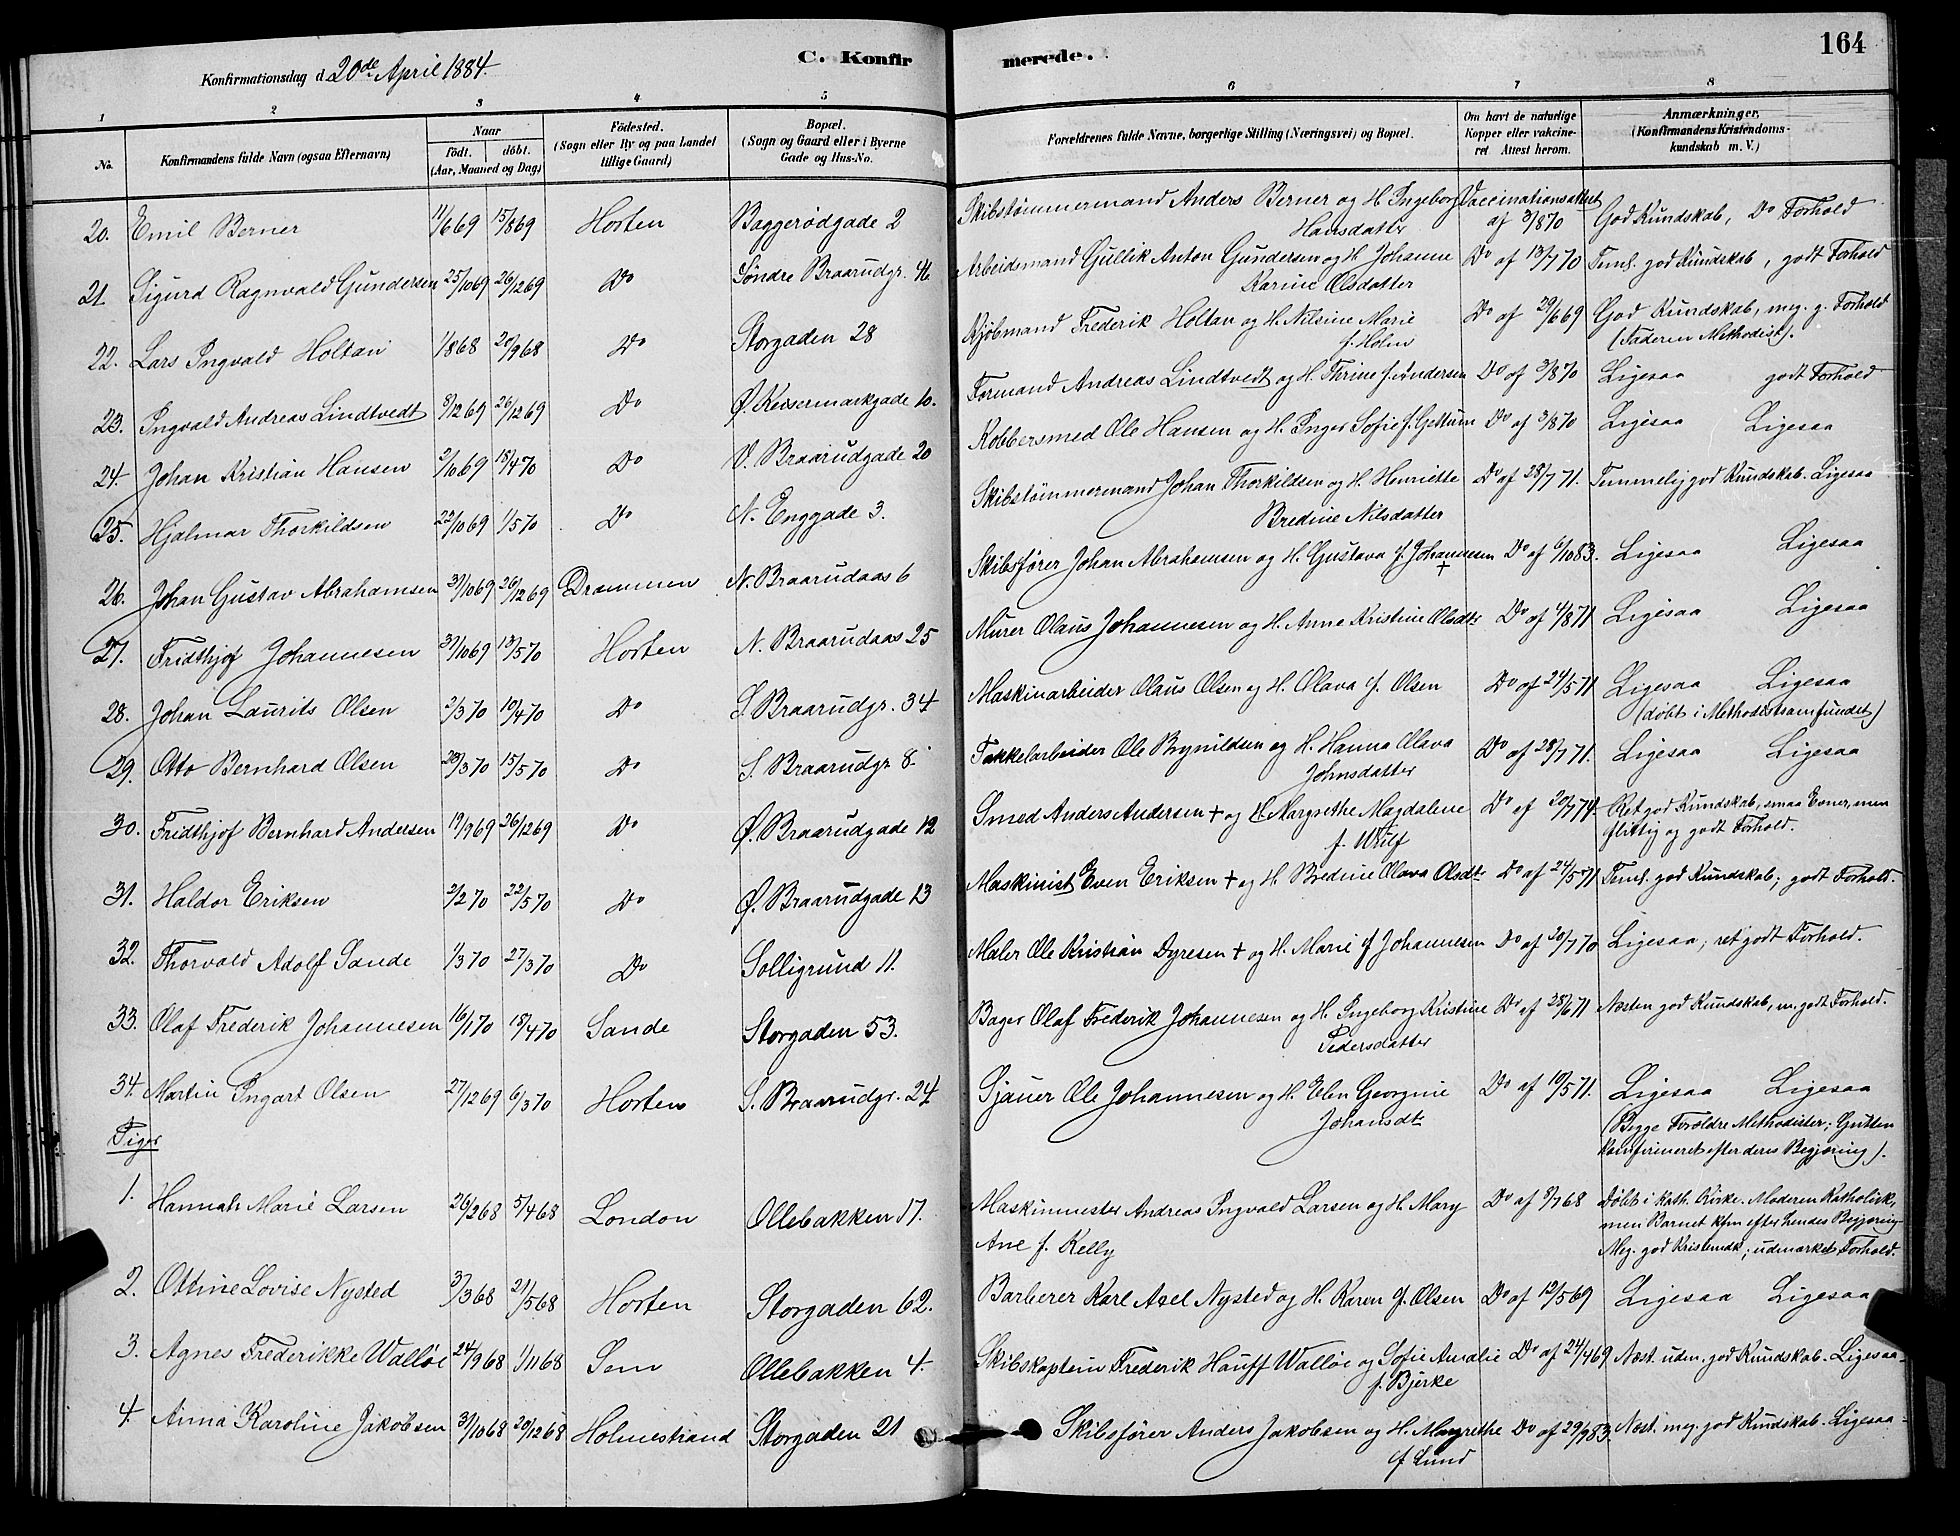 164
Konfirmationsdag d. 20de April 1884.
C. Konfirmerede.
1 2 3 4 5 6 7 8
No. Konfirmandens fulde Navn (ogsaa Efternavn) Naar født. døbt. (Aar, Maaned og Dag) Fødested. (Sogn eller By og paa Landet tillige Gaard) Bopæl. (Sogn og Gaard eller i Byerne Gade og Hus-No. Forældrenes fulde Navne, borgerlige Stilling (Næringsvei) og Bopæl. Om havt de naturlige Kopper eller vakcineret Attest herom. Anmærkninger. (Konfirmandens Kristendomskundskab m. V.)
20. Emil Berner 11/6 69 15/8 69 Horten Baggerødgade 2 Skibstømmermand Anders Berner og H. Ingeborg Hansdatter Vaccinationsattest af 3/8 70 God Kundskab, Do Forhold
21. Sigurd Ragnvald Gundersen 25/10 69 26/12 69 Do Søndre Braarudgr. 46 Arbeidsmand Gullik Anton Gundersen og H. Johanne Karine Olsdatter Do af 13/7 70 Teml. god Kundskab, godt Forhold
22. Lars Ingvald Holtan 1/8 68 20/9 68 Do Storgaden 28 Kjøbmand Frederik Holtan og H. Nilsine Marie f. Holm Do af 29/6 69 God Kundskab, meg. g. Forhold (Faderen Methodist).
23. Ingvald Andreas Lindtvedt 8/12 69 26/12 69 Do Ø. Keisermarkgade 10. Formand Andreas Lindtvedt og H. Thrine f. Andersen Do af 3/8 70 Ligesaa godt Forhold
24. Johan Kristian Hansen 2/10 69 18/4 70 Do V. Braarudgade 20 Kobbersmed Ole Hansen og H. Inger Sofie f. Gjettum Do af 3/8 70 Ligesaa Ligesaa
25. Hjalmar Thorkildsen 22/10 69 1/5 70 Do N. Enggade 3. Skibstømmermand Johan Thorkildsen og H. Henriette Bredine Nilsdatter Do af 28/7 71. Temmelig god Kundskab. Ligesaa
26. Johan Gustav Abrahamsen 31/10 69 26/12 69 Drammen N. Braarudaas 6 Skibsfører Johan Abrahamsen og H. Gustava f. Johannesen + Do af 6/10 83. Ligesaa Ligesaa
27. Fridthjof Johannesen 31/10 69 13/5 70 Horten N. Braarudaas 25 Murer Olaus Johannesen og H. Anne Kristine Olsdtr Do af 4/8 71 Ligesaa Ligesaa
28. Johan Laurits Olsen 2/3 70 10/4 70 Do S. Braarudgr. 34 Maskinarbeider Olaus Olsen og H. Olava f. Olsen Do af 24/5 71 Ligesaa Ligesaa (døbt i Methodistsamfundet)
29. Otto Bernhard Olsen 23/3 70 15/5 70 Do S. Braarudgr. 8. Takkelarbeider Ole Brynildsen og H. Hanna Olava Johnsdatter Do af 28/7 71. Ligesaa Ligesaa
30. Fridthjof Bernhard Andersen 19/9 69 26/12 69 Do Ø. Braarudgade 12 Smed Anders Andersen + og H. Margrethe Magdalene f. Wulf Do af 20/7 74. Ret god Kundskab, smaa Evner, men flittig og godt Forhold.
31. Haldor Eriksen 2/2 70 22/5 70 Do Ø. Braarudgade 13 Maskinist Even Eriksen + og H. Bredine Olava Olsdtr Do af 24/5 71 Teml. god Kundskab, godt Forhold.
32. Thorvald Adolf Sande 1/3 70 27/3 70 Do Solligrund 11. Maler Ole Kristian Dyresen + og H. Marie f. Johannesen Do af 20/7 70 Ligesaa, ret godt Forhold.
33. Olaf Frederik Johannesen 16/1 70 18/4 70 Sande Storgaden 53. Bager Olaf Frederik Johannesen og H. Ingeborg Kristine Pedersdatter Do af 28/6 71 Næsten god Kundskab, m. godt Forhold.
34. Martin Ingart Olsen 27/12 69 6/3 70 Horten S. Braarudgr. 24 Sjauer Ole Johannesen og H. Elen Georgine Johansdt Do af 19/5 71. Ligesaa Ligesaa (Begge Forældre Methodister; Gutten konfirmeret efter deres Begjæring).
Piger
1. Hannah Marie Larsen 26/2 68 5/4 68 London Ollebakken 17. Maskinmester Andreas Ingvald Larsen og H. Mary Ane f. Kelly Do af 8/7 68 Døbt i kath. Kirke. Moderen Katholik, men Barnet kfm efter hendes Begjæring. Meg. god Kristendk; udmærket Forhold.
2. Ottine Lovise Nysted 3/3 68 21/5 68 Horten Storgaden 62. Barberer Karl Axel Nysted og H. Karen f. Olsen Do af 12/5 69 Ligesaa Ligesaa
3. Agnes Frederikke Walløe 24/9 68 1/11 68 Sem Ollebakken 4. Skibskaptein Frederik Hauff Walløe og Sofie Amalie f. Bjerke Do af 24/4 69 Næst. udm. god Kundskab. Ligesaa
4. Anna Karoline Jakobsen 31/10 68 20/12 68 Holmestrand Storgaden 21 Skibsfører Anders Jakobsen og H. Margrethe f. Lund Do af 29/9 83. Næst. meg. god Kundskab. Ligesaa